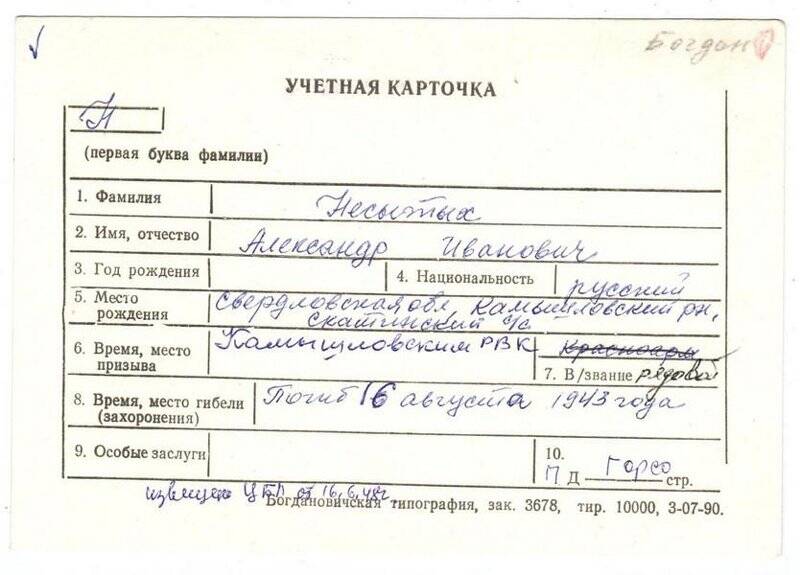 Богдан
УЧЕТНАЯ КАРТОЧКА
Н
(первая буква фамилии)
1. Фамилия Несытых
2. Имя, отчество Александр Иванович
3. Год рождения 4. Национальность русский
5. Место рождения Свердловская обл Камышловский рн,
Скатинский с/с
6. Время, место призыва Камышловским РВК Красноарм
7. В/звание рядовой
8. Время, место гибели (захоронения) Погиб 16 августа 1943 года
9. Особые заслуги 10.
П Д Горсо стр.
ЦБП от 16.6.48г.
Богдановичская типография, зак. 3678, тир. 10000, 3-07-90.